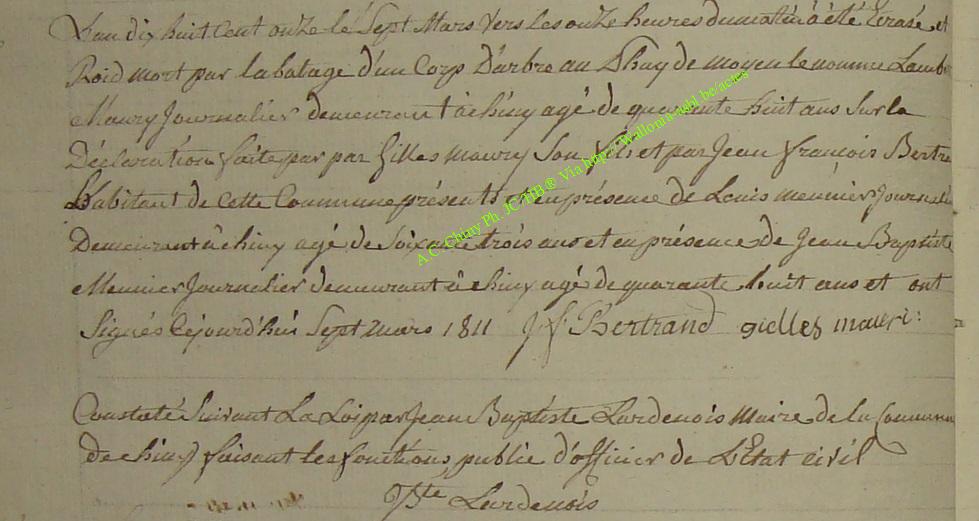 L'an dix huit Cent onze le Sept Mars vers les onze heures du matin à été Ecrasé et
Roid mort par la batage d'un Corp D'arbre au de moyen le nommé Lamb
Maury Journalier demeurant à chiny agé de quarante huit ans Sur la
Déclaration faite par par Gilles maury Son fils et par Jean françois Bertra
habitant de Cette Commune présents et en présence de Louis meunier Journali
Demeurant à chiny agé de Soixante trois ans et en présence de Jean Baptiste
Meunier Journalier demeurant à chiny agé de quarante huit ans et ont
Signés Cejourd'hui Sept Mars 1811 J f Bertrand gielles mauri:
A.C. Chiny Ph. JCHB® Via http://Wallonia-asbl.be/actes
Constaté Suivant La Loi par Jean Baptiste Lardenois Maire de la Commune
de chiny faisant les fonctions public d'officier de L'Etat civil
JBte Lardenois